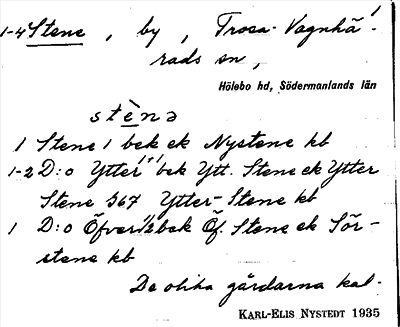 1-4 Stene, by, Trosa-Vagnhä-
rads sn,
Hölebo hd, Södermanlands län
stènə
1 Stene 1 bek ek Nystene kb
1-2 D:o Ytter 1+1 bek Ytt. Stene ek Ytter
Stene 367 Ytter-Stene kb
1 D:o Öfver 1/2 bek Öf. Stene ek Sör-
stene kb
De olika gårdarna kal-
KARL-ELIS NYSTEDT 1935